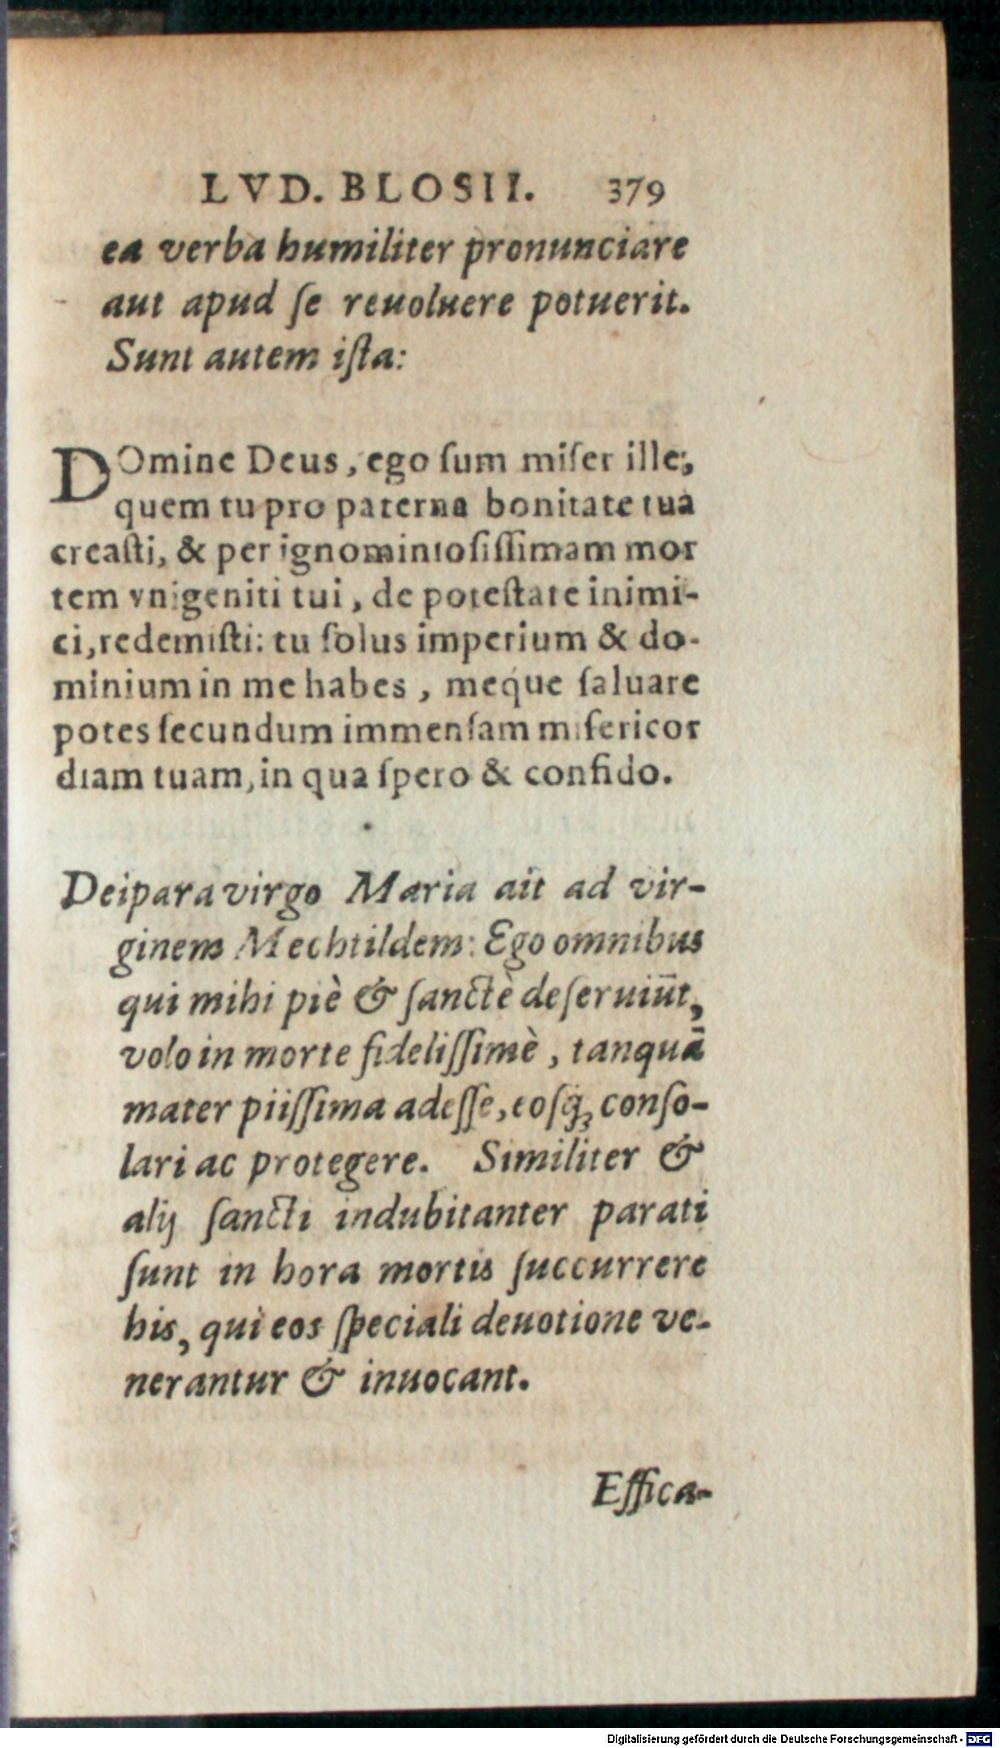 LVD. BLOSII. 379
ea verba humiliter pronunciare
aut apud ſe reuoluere potuerit.
Sunt autem iſta:
DOmine Deus, ego ſum miſer ille,
quem tu pro paterna bonitate tua
creaſti, & per ignominioſiſſimam mor
tem vnigeniti tui, de poteſtate inimi-
ci, redemiſti: tu ſolus imperium & do-
minium in me habes, meque ſaluare
potes ſecundum immenſam miſericor
diam tuam, in qua ſpero & confido.
Deipara virgo Maria ait ad vir-
ginem Mechtildem: Ego omnibus
qui mihi piè & ſanctè deſeruiūt,
volo in morte fideliſſimè, tanquā
mater piiſſima adeſſe, eoſq́; conſo-
lari ac protegere. Similiter &
alij ſancti indubitanter parati
ſunt in hora mortis ſuccurrere
his, qui eos ſpeciali deuotione ve-
nerantur & inuocant.
Effica-
Digitalisierung gefördert durch die Deutsche Forschungsgemeinschaft - DFG